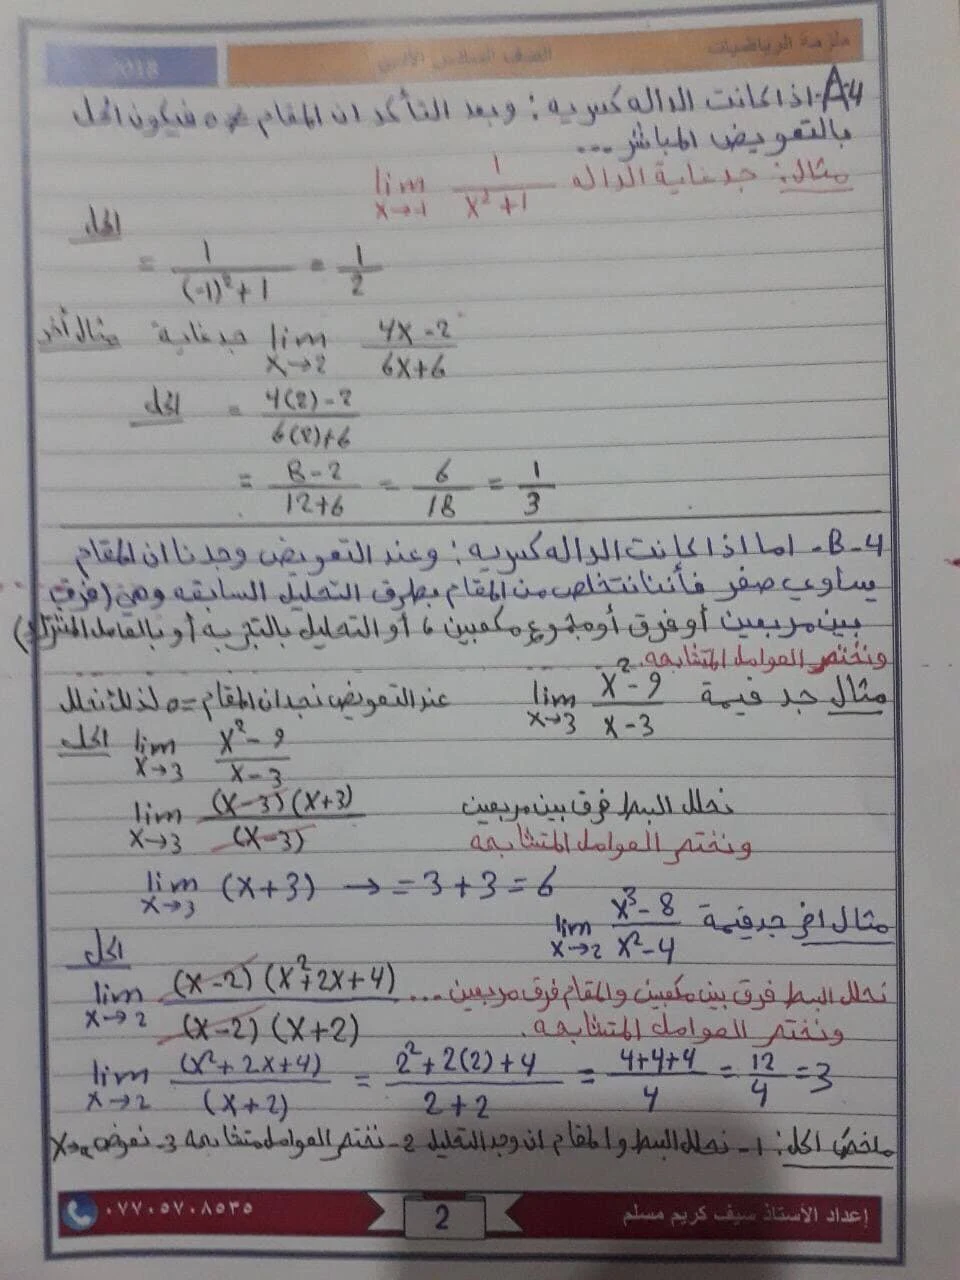 ملزمة الرياضيات الصف السادس الأدبي 2018
4-A- اذا كانت الداله كسريه : وبعد التأكد ان المقام ≠ 0 فيكون الحل
بالتعويض المباشر ...
مثال: جد غاية الداله lim x→-1 1/(x²+1)
الحل
= 1/((-1)²+1) = 1/2
مثال أخر جد غاية lim x→2 (4x-2)/(6x+6)
الحل = (4(2)-2)/(6(2)+6)
= (8-2)/(12+6) = 6/18 = 1/3
4-B- اما اذا كانت الداله كسريه : وعند التعويض وجدنا ان المقام
يساوي صفر فأننا نتخلص من المقام بطرق التحليل السابقه وهي (فرق
بين مربعين أو فرق أو مجموع مكعبين أو التحليل بالتجربه أو بالعامل المشترك)
ونختصر العوامل المتشابهه.
مثال جد قيمة lim x→3 (x²-9)/(x-3) عند التعويض نجد ان المقام = 0 لذلك نحلل
الحل lim x→3 (x²-9)/(x-3)
lim x→3 (x-3)(x+3)/(x-3) نحلل البسط فرق بين مربعين
ونختصر العوامل المتشابهه
lim x→3 (x+3) → = 3+3 = 6
مثال اخر جد قيمة lim x→2 (x³-8)/(x²-4)
الحل
lim x→2 (x-2)(x²+2x+4)/(x-2)(x+2) نحلل البسط فرق بين مكعبين والمقام فرق مربعين ...
ونختصر العوامل المتشابهه.
lim x→2 (x²+2x+4)/(x+2) = (2²+2(2)+4)/(2+2) = (4+4+4)/4 = 12/4 = 3
ملخص الحل: 1- نحلل البسط والمقام ان وجد التحليل 2- نختصر العوامل متشابهه 3- نعوض x→a
إعداد الأستاذ سيف كريم مسلم 2 ٠٧٧٠٥٧٠٨٥٣٥